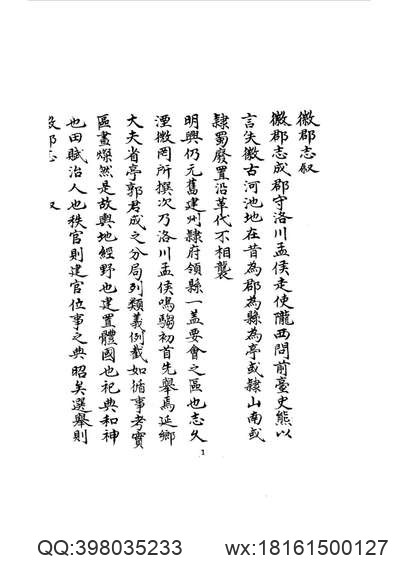 徽郡志叙
徽郡志成郡守洛川孟侯走使隴西問前臺史熊以
言失徽古河池地在昔為郡為縣為亭或隸山南或
隸蜀廢置沿革代不相襲
明興仍元舊建州隸府領縣一蓋要會之區也志久
湮微罔所撰次乃洛川孟侯鳴騶初首先舉焉延鄉
大夫省亭郭君成之分局列類義例截如循事考實
區畫燦然是故輿地經野也建置體國也祀典和神
也田賦治人也秩官則建官位事之典昭矣選舉則
1
QQ:398035233
wx:18161500127